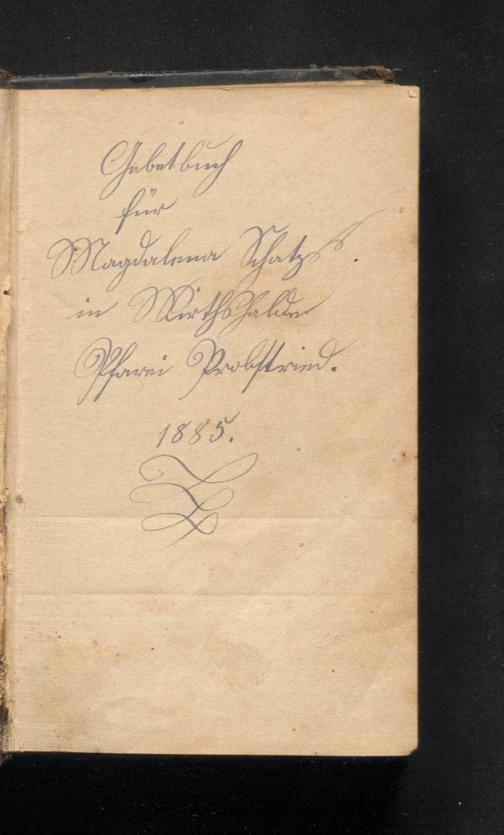 Gebetbuch
für
Magdalena Schatz
in Wirthshalden
Pfarei Probstried.
1885.